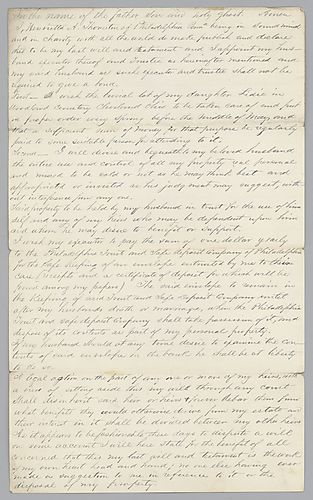 In the name of the father Son and Holy Ghost. Amen
I, Henrietta A. of Philadelphia Penn^a being in Sound mind
and in charity with all the world do make publish and declare
this to be my last will and testament and I appoint my hus-
band executor thereof and Trustee as hereinafter mentioned and
my said husband as such executor and trustee shall not be
required to give a bond.
First — I wish the burial lot of my daughter Lidie in
Woodland Cemetery Cleveland Ohio to be taken care of and put
in proper order every Spring before the middle of May, and
that a sufficient sum of Money for that purpose be regularly
paid to some suitable person for attending to it.
Second — I will devise and bequeath to my beloved husband
the entire use and control of all my property real personal
and mixed to be sold or not as he may think best and
appropriated or invested as his judgment may suggest, with-
out interference from any one.
This property to be held by my husband in trust for the use of him
self and any of my heirs who may be dependant upon him
and whom he may desire to benefit or support.
I wish my executor to pay the sum of one dollar yearly
to the Philadelphia Trust and Safe deposit Company of Philadelphia
for the safe keeping of an envelope entrusted by me to their
care (Receipt and a certificate of deposit for which will be
found among my papers) The said envelope to remain in
the keeping of said Trust and Safe Deposit Company until
after my husbands death or marriage, when the Philadelphia
Trust and safe deposit Company shall take possession of it, and
dispose of its contents as part of my personal property.
If my husband should at any time desire to examine the con-
tents of said envelope in the bank he shall be at liberty
to do so.
A legal action on the part of any one or more of my heirs, with
a view of setting aside this my will through any court
shall disinherit said heir or heirs & forever debar them from
what benefit they would otherwise derive from my estate and
their interest in it shall be divided between my other heirs
As it appears to be fashionable these days to dispute a will
on some account I will here state for the benefit of all
concerned that this my last will and testament is the work
of my own heart head and hand, no one else having ever
made a suggestion to me in reference to it or the
disposal of my property.